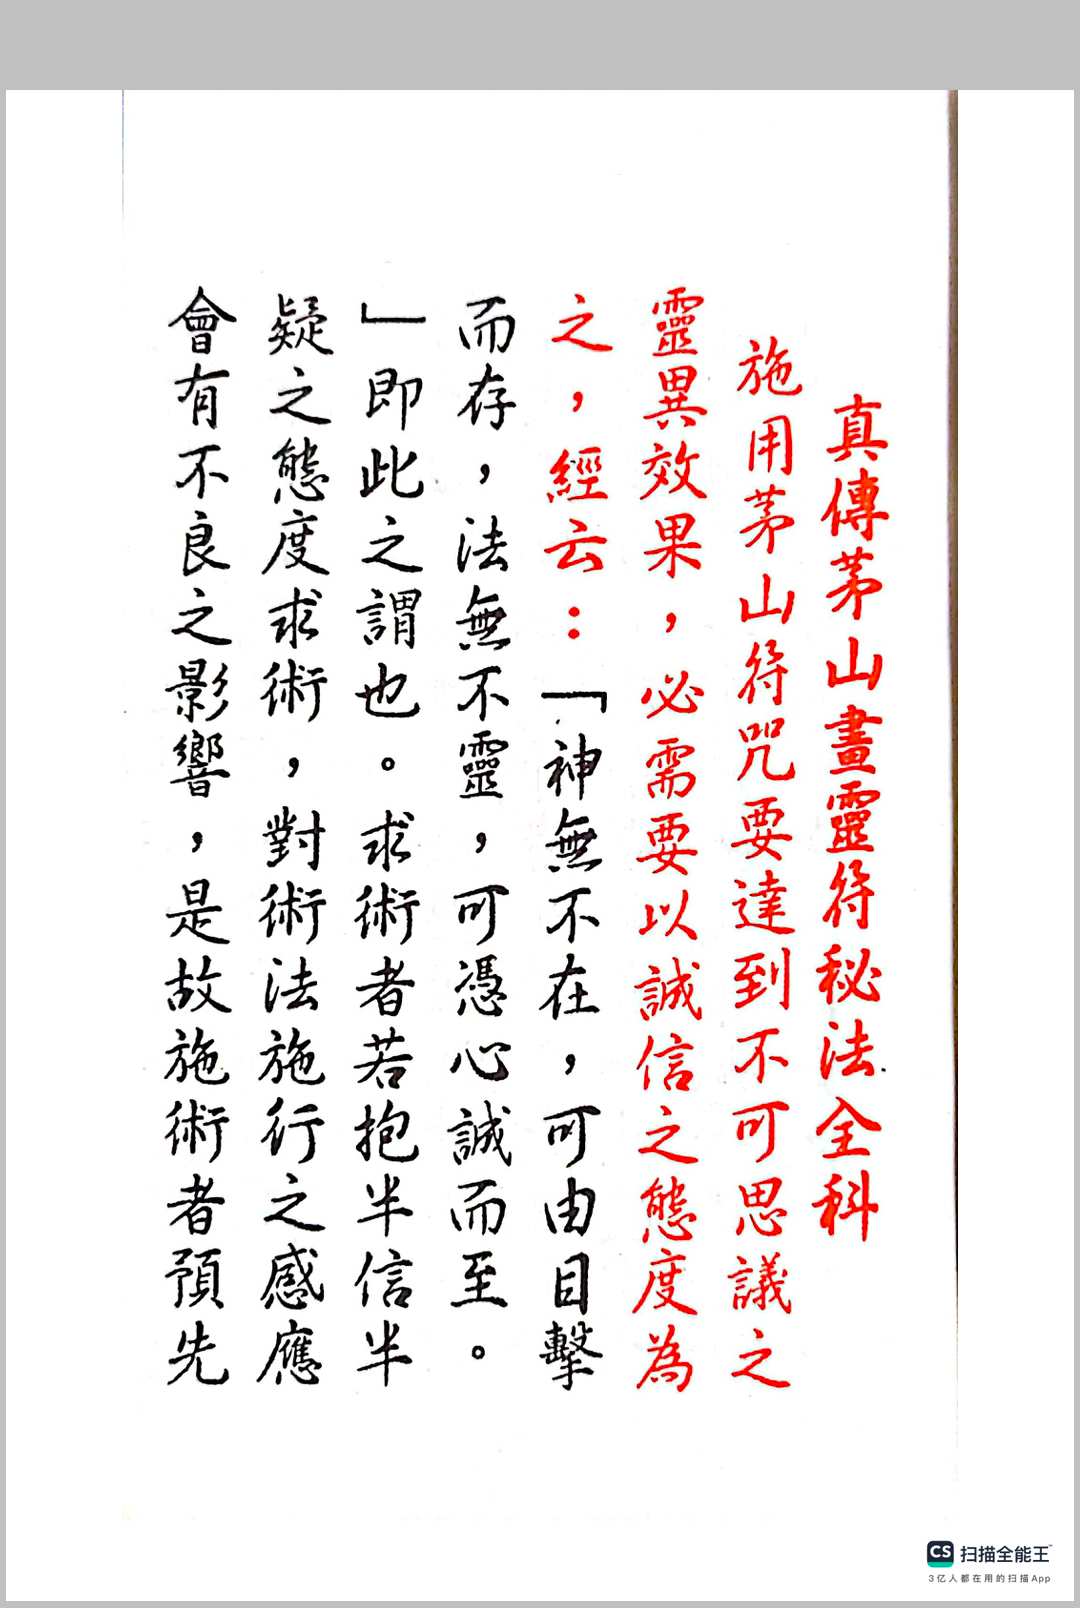 真傳茅山畫靈符秘法全科
施用茅山符咒要達到不可思議之
靈異效果，必需要以誠信之態度為
之，經云：「神無不在，可由目擊
而存，法無不靈，可憑心誠而至。
」即此之謂也。求術者若抱半信半
疑之態度求術，對術法施行之感應
會有不良之影響，是故施術者預先
CS 扫描全能王
3亿人都在用的扫描App